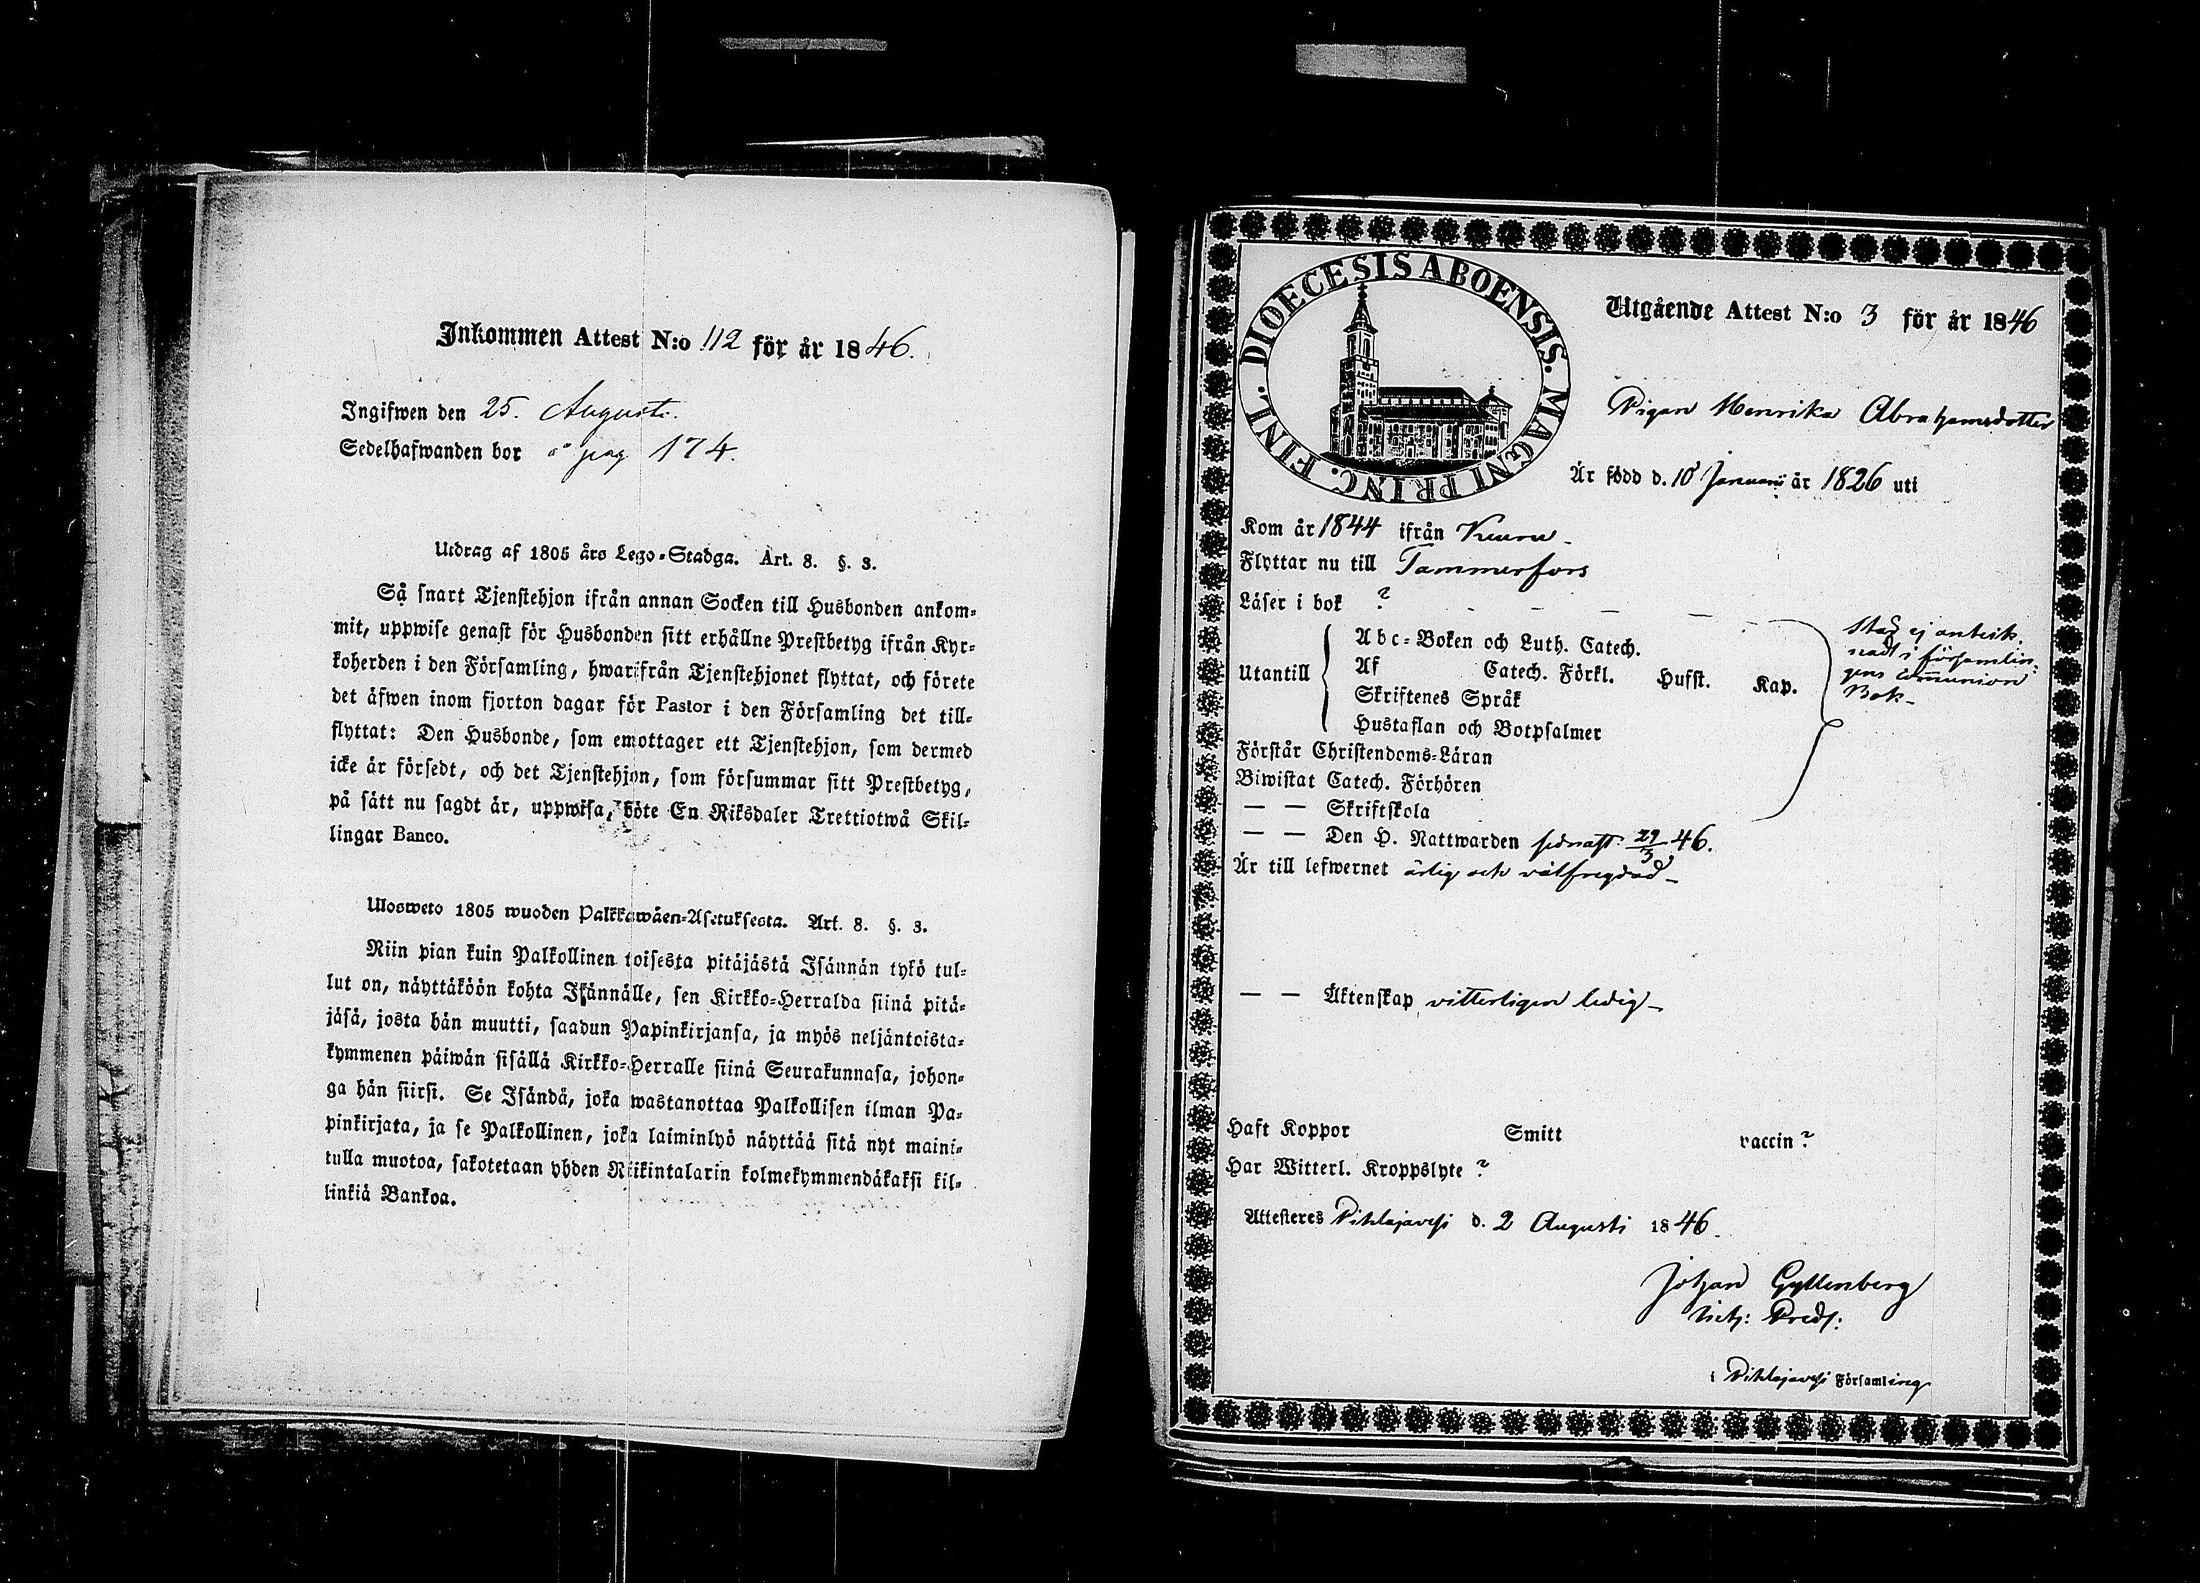 Inkommen Attest N:o 112 för år 1846.
Ingifwen den 25. Augusti.
Sedelhafwanden bor å pag 174.
Utdrag af 1805 års Lego-Stadga. Art. 8. §. 3.
Så snart Tjenstehjon ifrån annan Socken till Husbonden ankom-
mit, uppwise genast för Husbonden sitt erhållne Prestbetyg ifrån Kyr-
koherden i den Församling, hwarifrån Tjenstehjonet flyttat, och förete
det äfwen inom fjorton dagar för Pastor i den Församling det till-
flyttat: Den Husbonde, som emottager ett Tjenstehjon, som dermed
icke är försedt, och det Tjenstehjon, som försummar sitt Prestbetyg,
på sätt nu sagdt är, uppwisa, böte En Riksdaler Trettiotwå Skil-
lingar Banco.
Ulosweto 1805 wuoden Palkkawäen-Asetuksesta. Art. 8. §. 3.
Niin pian kuin Palkollinen toisesta pitäjästä Isännän tykö tul-
lut on, näyttäköön kohta Isännälle, sen Kirkko-Herralda siinä pitä-
jäsä, josta hän muutti, saadun Papinkirjansa, ja myös neljäntoista-
kymmenen päiwän sisällä Kirkko-Herralle siinä Seurakunnasa, johon-
ga hän siirsi. Se Isändä, joka wastanottaa Palkollisen ilman Pa-
pinkirjata, ja se Palkollinen, joka laiminlyö näyttää sitä nyt maini-
tulla muotoa, sakotetaan yhden Riikintalarin kolmekymmendäkaksi kil-
linkiä Bankoa.
DIOECESIS ABOENSIS. MAGNI PRINC. FINL.
Utgående Attest N:o 3 för år 1846
Pigan Henrika Abrahamsdotter
Är född d. 10 Januari år 1826 uti
Kom år 1844 ifrån Keuru -
Flyttar nu till Tammerfors
Läser i bok ? - - - -
Utantill
Abc-Boken och Luth. Catech.
Af Catech. Förkl. Husst. Kap.
Skriftenes Språk
Hustaflan och Botpsalmer
Står ej anteck-
nadt i församlin-
gens Communion
Bok -
Förstår Christendoms-Läran
Biwistat Catech. Förhören
— — Skriftskola
— — Den H. Nattwarden sednast 29/3 46.
Är till lefwernet ärlig och välfregdad -
— — Äktenskap, vitterligen ledig -
Haft Koppor Smitt vaccin ?
Har Witterl. Kroppslyte ?
Attesteres Pihlajavesi d. 2 Augusti 1846.
Johan Gyllenberg
Pred.:
i Pihlajavesi Församling